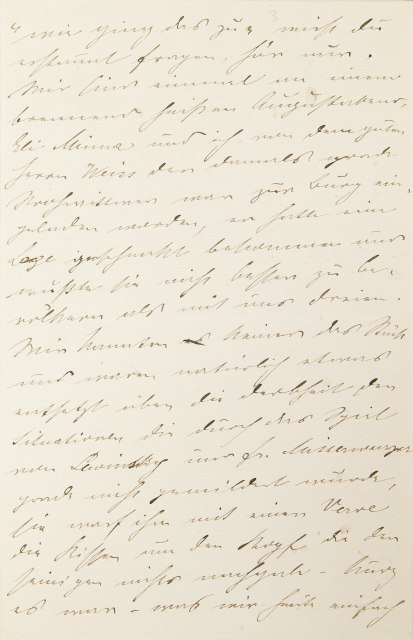 "wie ging das zu" wirst du
erstaunt fragen, hör nur.
Wir sind einmal an einem
brennend heißen Augustabend,
Eli Minna und ich von dem guten
Herrn Weiss der damals gerade
Strohwittwer war zur Burg ein-
geladen worden, er hatte eine
Loge geschenkt bekommen und
wußte sie nicht besser zu be-
völkern als mit uns dreien.
Wir kannten keiner das Stück
und waren natürlich etwas
entsetzt über die Derbheit der
Situationen die durch das Spiel
von Lewinsky und Fr. Mitterwurzer
grade nicht gemildert wurde,
sie warf ihm mit einer Verve
die Kissen um den Kopf die der
seinigen nichts nachgab – kurz
es war – was wir heute einfach